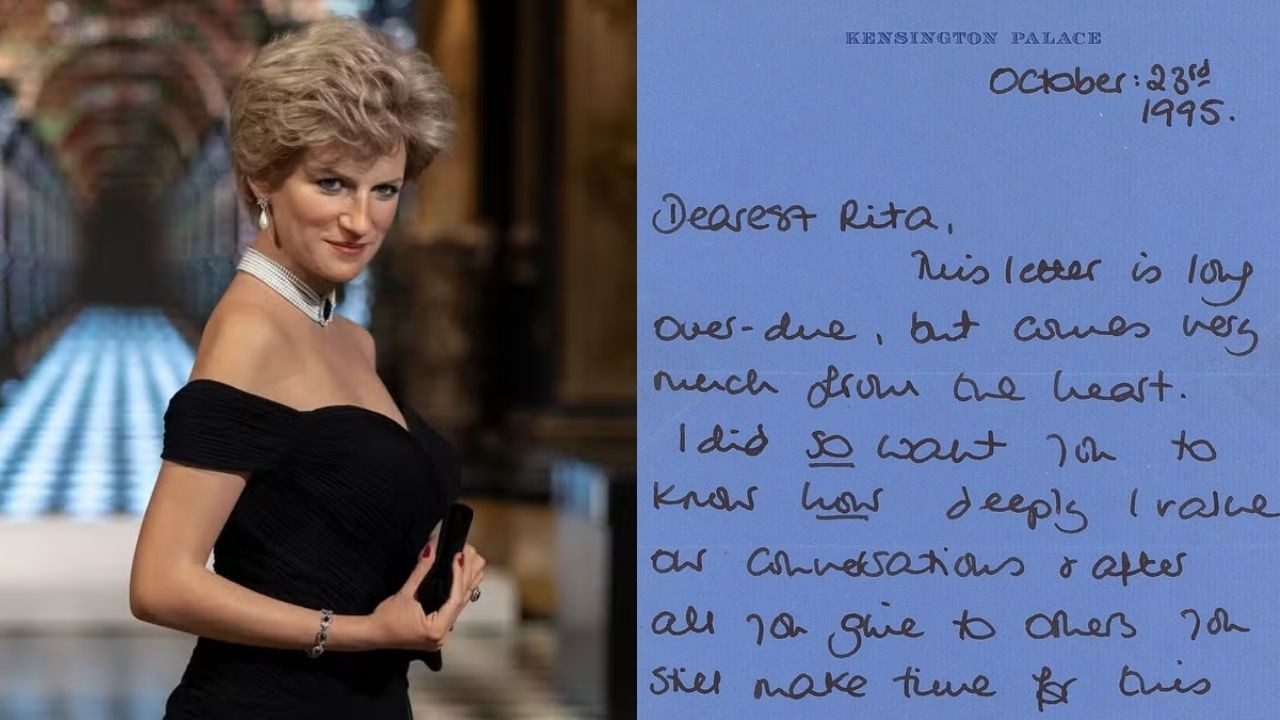 KENSINGTON PALACE
October: 23rd
1995.
Dearest Rita,
This letter is long
over-due, but comes very
much from the heart.
I did so want you to
know how deeply I value
our conversations & after
all you give to others you
still make time for this